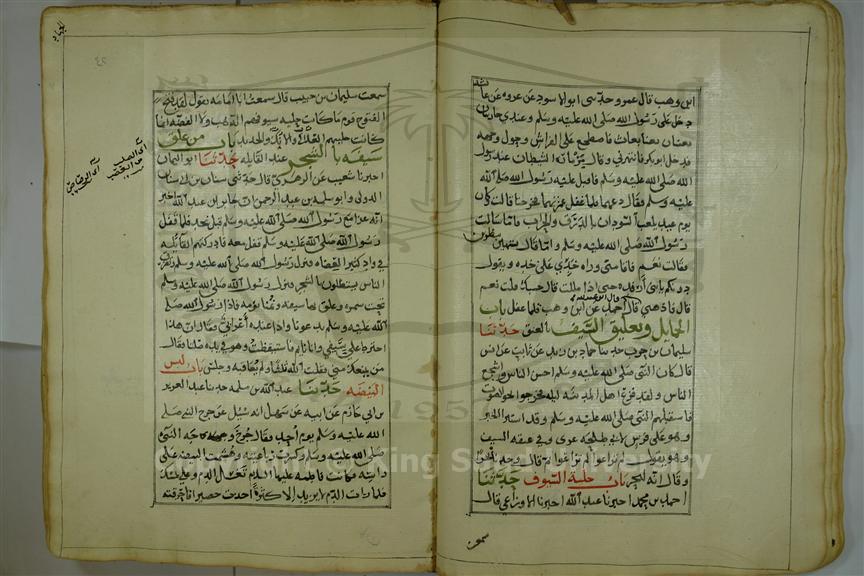 ابن وهب قال عمرو حدثني ابو الاسود عن عروه عن عا
دخل علي رسول الله صلي الله عليه وسلم وعندي جاريتان
تغنيان بغنا بعاث فاضطجع علي الفراش وحول وجهه
فدخل ابو بكر فانتهرني وقال مزماره الشيطان عند رسول
الله صلي الله عليه وسلم فاقبل عليه رسول الله صلي الله
عليه وسلم فقال دعهما فلما غفل غمزتهما فخرجتا قالت وكان
يوم عيد يلعب السودان بالدرق والحراب فاما سالت
رسول الله صلي الله عليه وسلم واما قال تشتهين تنظرين
فقالت نعم فاقامني وراه خدي علي خده ويقول
دونكم يابني ارفده حتي اذا مللت قال حسبك قلت نعم
قال فاذهبي قال احمد عن ابن وهب فلما غفل باب
الحمايل وتعليق السيف بالعنق حدثنا
سليمان بن حرب حدثنا حماد بن زيد عن ثابت عن انس
قال كان النبي صلي الله عليه وسلم احسن الناس واشجع
الناس ولقد فزع اهل المدينه ليله فخرجوا نحو الصوت
فاستقبلهم النبي صلي الله عليه وسلم وقد استبرا الخبر
وهو علي فرس لابي طلحه عري وفي عنقه السيف
وهو يقول لم تراعوا لم تراعوا ثم قال وجدناه بحرا
وقال انه لبحر باب حلية السيوف حدثنا
احمد بن محمد اخبرنا عبد الله اخبرنا الاوزاعي قال
سمعت
الجهاد
سمعت سليمان بن حبيب قال سمعت ابا امامه يقول لقد فتح
الفتوح قوم ما كانت حليه سيوفهم الذهب ولا الفضه انما
كانت حليتهم العلابي والانك والحديد باب من علق
سيفه بالشجر عند القايله حدثنا ابو اليمان
اخبرنا شعيب عن الزهري قال حدثني سنان بن ابي سنان
الدولي وابو سلمه بن عبد الرحمن ان جابر بن عبد الله اخبر
انه غزا مع رسول الله صلي الله عليه وسلم قبل نجد فلما قفل
رسول الله صلي الله عليه وسلم قفل معه فادركتهم القايله
في واد كثير العضاه فنزل رسول الله صلي الله عليه وسلم وتفرق
الناس يستظلون بالشجر فنزل رسول الله صلي الله عليه وسلم
تحت سمره وعلق بها سيفه ونمنا نومه فاذا رسول الله صلي
الله عليه وسلم يدعونا واذا عنده اعرابي فقال ان هذا
اخترط علي سيفي وانا نايم فاستيقظت وهو في يده صلتا فقال
من يمنعك مني فقلت الله ثلاثا ولم يعاقبه وجلس باب لبس
البيضه حدثنا عبد الله بن سلمه حدثنا عبد العزيز
بن ابي حازم عن ابيه عن سهل انه سئل عن جرح النبي صلي
الله عليه وسلم يوم احد فقال جرح وجه النبي
صلي الله عليه وسلم وكسرت رباعيته وهشمت البيضه علي
راسه فكانت فاطمه عليها السلام تغسل الدم وعلي يمسك
فلما رات الدم لا يزيد الا كثرة اخذت حصيرا فاحرقته
King Saud University
1957